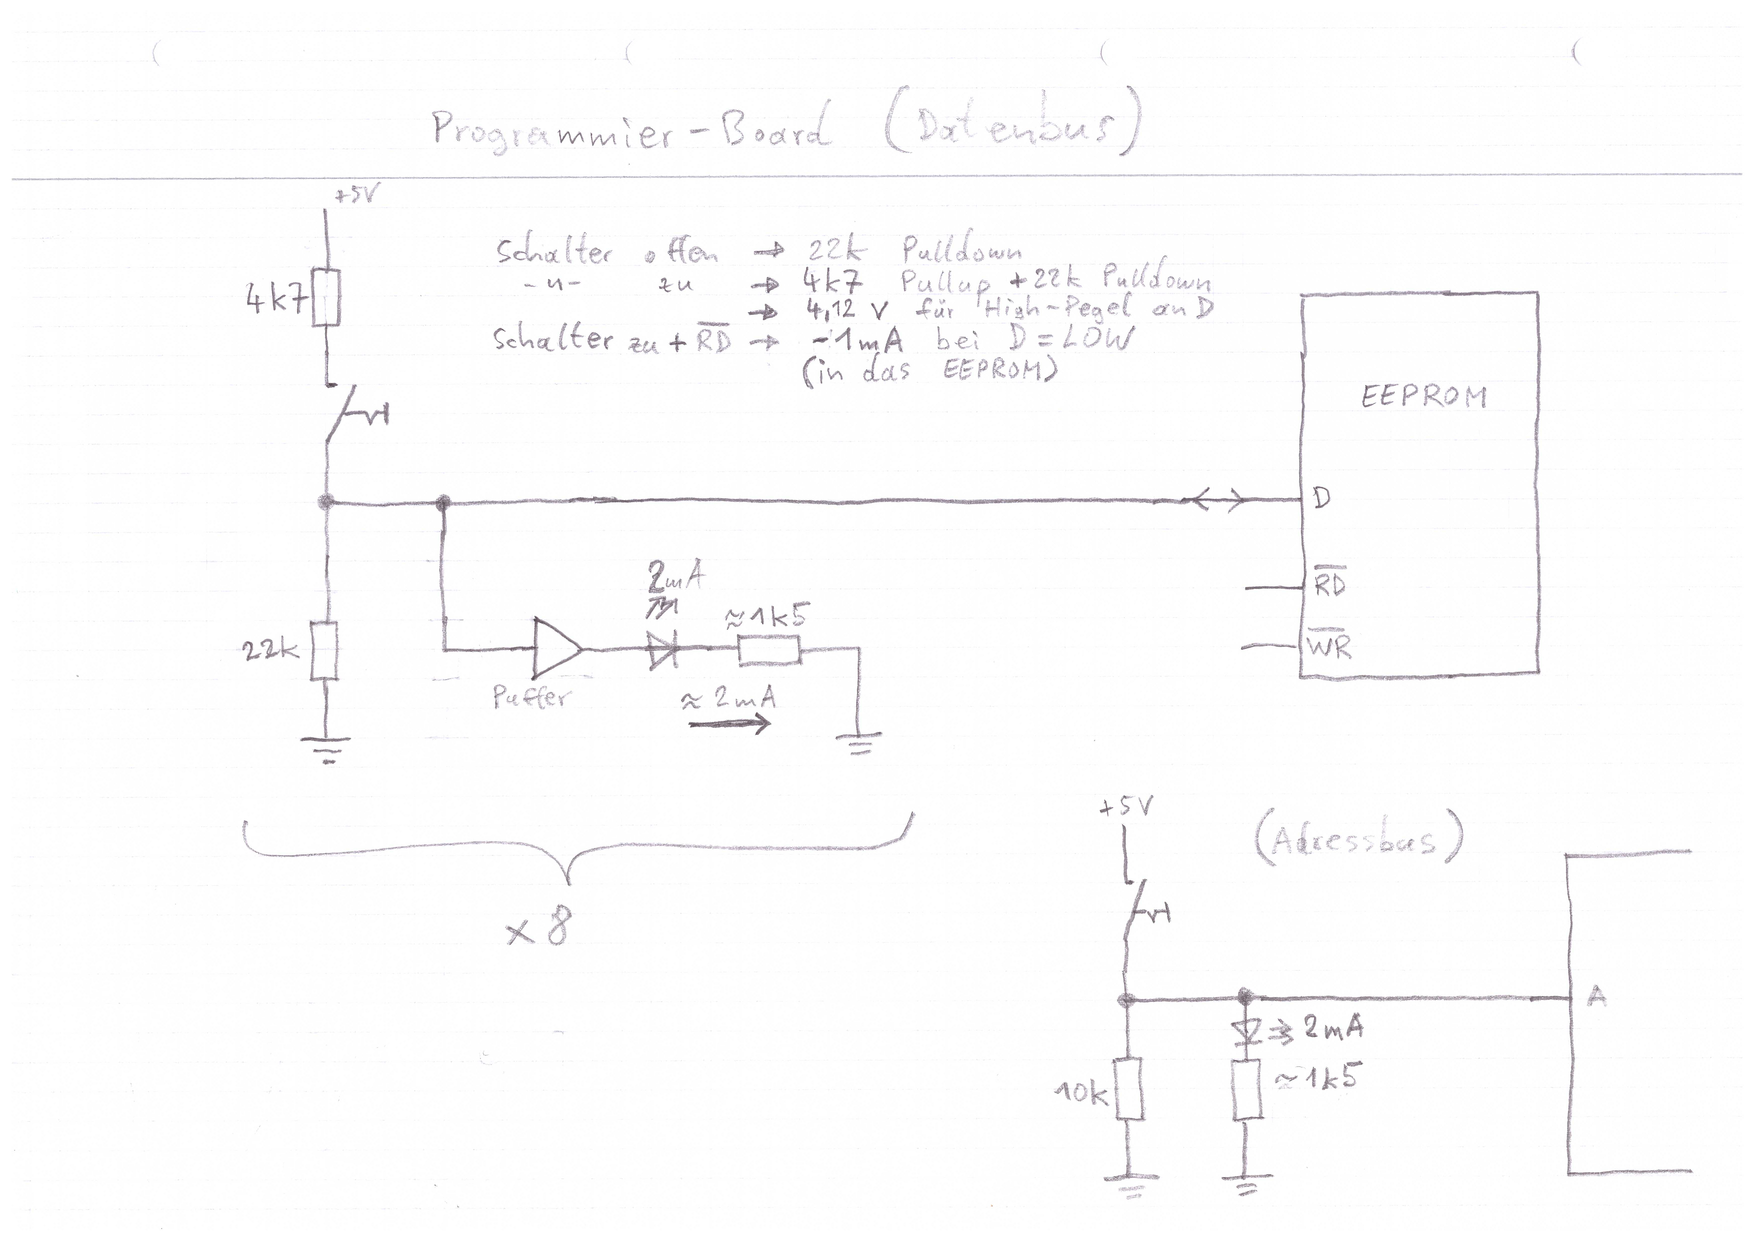 Programmier-Board (Datenbus)
+5V
Schalter offen → 22k Pulldown
-"- zu → 4k7 Pullup + 22k Pulldown
→ 4,12 V für High-Pegel an D
Schalter zu + R̅D̅ → ~1mA bei D=LOW
(in das EEPROM)
4k7
EEPROM
D
R̅D̅
W̅R̅
22k
2mA
≈1k5
Puffer
≈ 2mA
x 8
+5V
(Adressbus)
A
2mA
10k
≈1k5